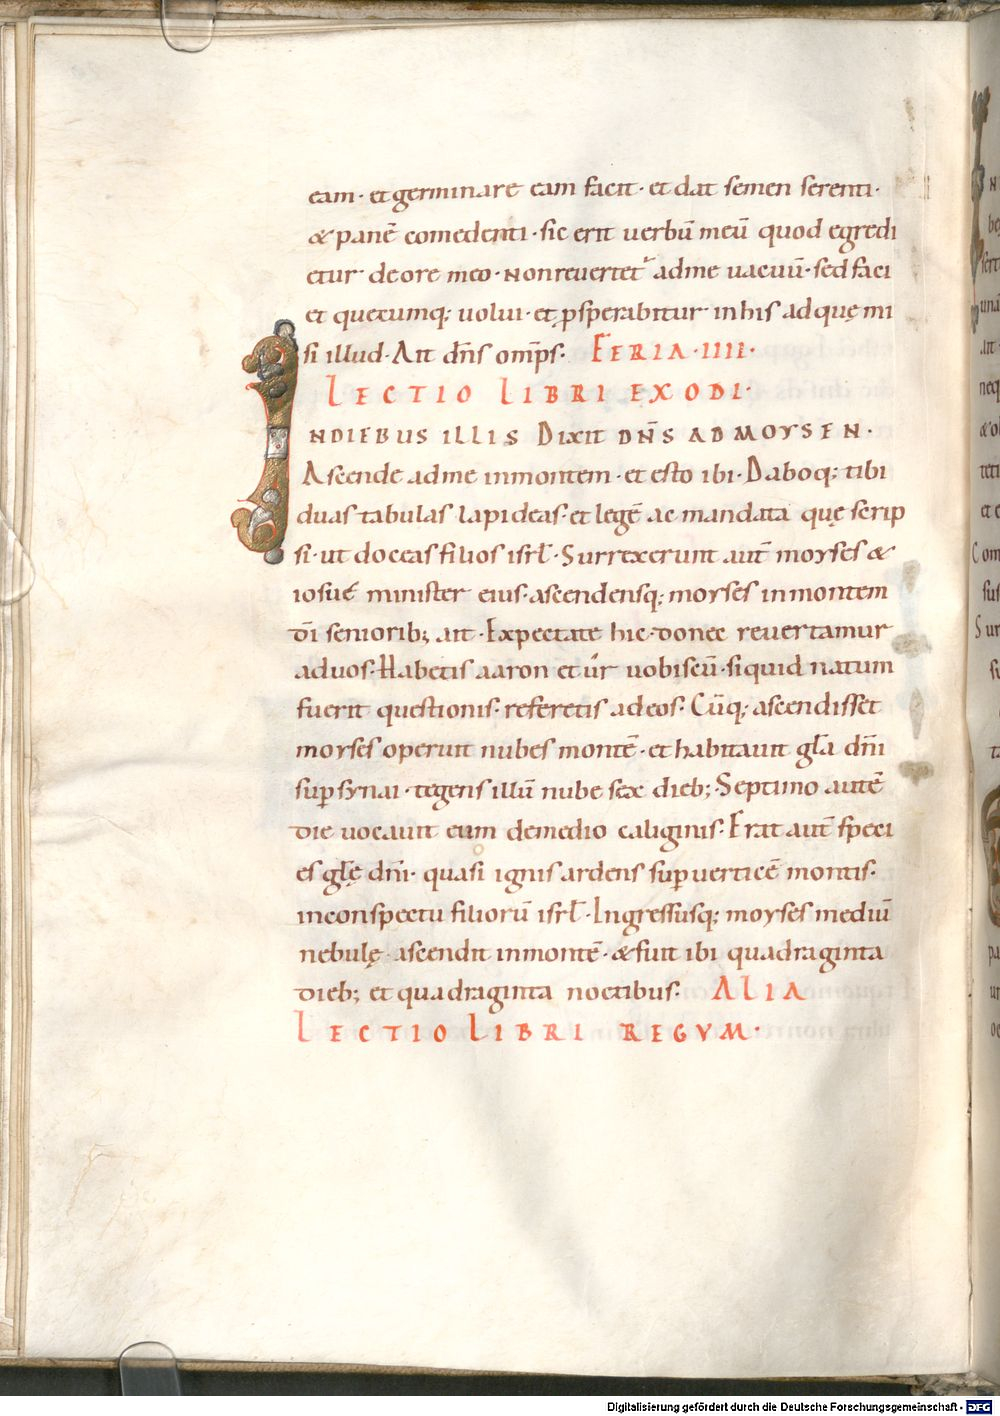 eam· et germinare eam facit· et dat semen serenti·
& panē comedenti· sic erit uerbū meū quod egredi
etur de ore meo· non reuertet᷑ ad me uacuū· sed faci
et quęcumq; uolui· et ꝓsperabitur in his ad quę mi
si illud· Ait dn̄s omīps· FERIA· IIII·
LECTIO LIBRI EXODI·
IN DIEBUS ILLIS Dixit DN̄S AD MOYSEN·
Ascende ad me in montem· et esto ibi· Daboq; tibi
duas tabulas lapideas· et legē ac mandata quę scrip
si· ut doceas filios isrl̄· Surrexerunt aut̄ moyses &
iosué minister eius· ascendensq; moyses in montem
dī seniorib; ait· Expectate hic· donec reuertamur
ad uos· Habetis aaron et ūr uobiscū· si quid natum
fuerit questionis· referetis ad eos· Cūq; ascendisset
moyses operuit nubes montē· et habitauit gl̄a dn̄i
suꝑ synai· tegens illū nube sex dieb; Septimo autē
die uocauit eum de medio caliginis· Erat aut̄ speci
es gl̄ę dn̄i· quasi ignis ardens suꝑ uerticē montis·
in conspectu filiorū isrl̄· Ingressusq; moyses mediū
nebulę ascendit in montē· & fuit ibi quadraginta
dieb; et quadraginta noctibus· ALIA
LECTIO LIBRI REGVM·
Digitalisierung gefördert durch die Deutsche Forschungsgemeinschaft · DFG